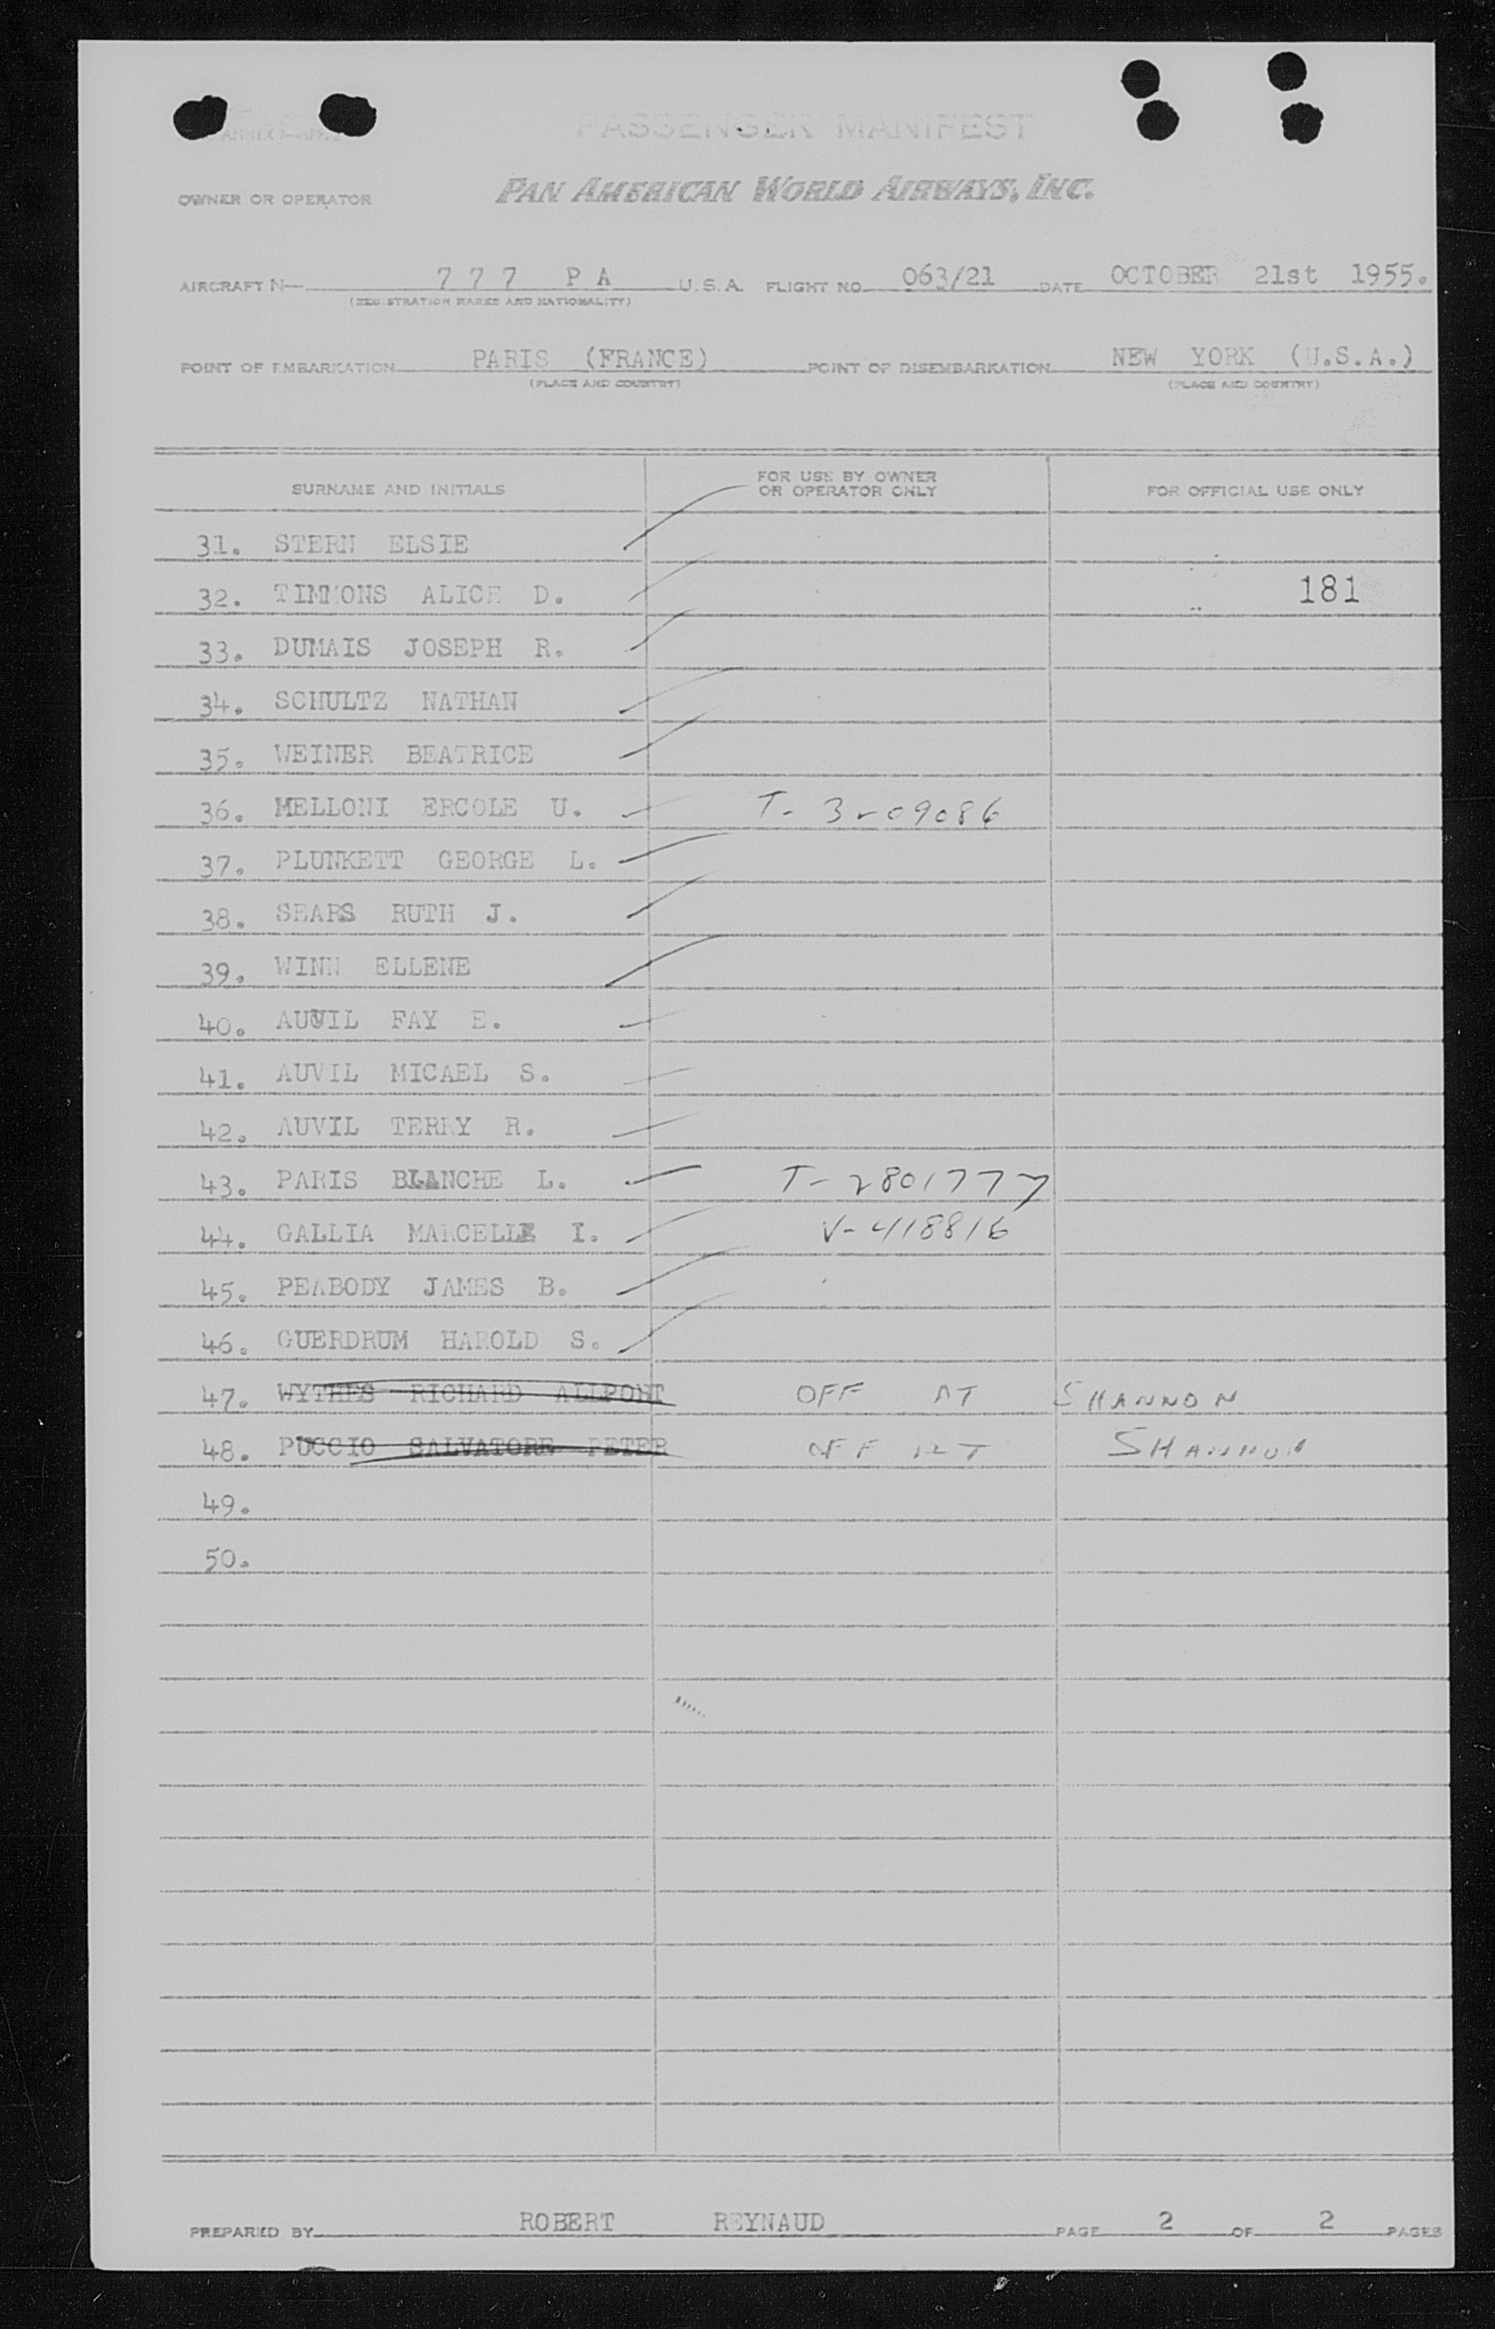 PASSENGER MANIFEST
OWNER OR OPERATOR PAN AMERICAN WORLD AIRWAYS, INC.
AIRCRAFT N— 777 PA U.S.A. FLIGHT NO. 063/21 DATE OCTOBER 21st 1955.
(REGISTRATION MARKS AND NATIONALITY)
POINT OF EMBARKATION PARIS (FRANCE) POINT OF DISEMBARKATION NEW YORK (U.S.A.)
(PLACE AND COUNTRY) (PLACE AND COUNTRY)
SURNAME AND INITIALS FOR USE BY OWNER OR OPERATOR ONLY FOR OFFICIAL USE ONLY
31. STERN ELSIE
32. TIMMONS ALICE D. 181
33. DUMAIS JOSEPH R.
34. SCHULTZ NATHAN
35. WEINER BEATRICE
36. MELLONI ERCOLE U. T-3-09086
37. PLUNKETT GEORGE L.
38. SEARS RUTH J.
39. WINN ELLENE
40. AUVIL FAY E.
41. AUVIL MICAEL S.
42. AUVIL TERRY R.
43. PARIS BLANCHE L. T-2801777
44. GALLIA MARCELLE I. V-418816
45. PEABODY JAMES B.
46. GUERDRUM HAROLD S.
47. WYTHES RICHARD ALLPORT OFF AT SHANNON
48. PUCCIO SALVATORE PETER OFF AT SHANNON
49.
50.
PREPARED BY ROBERT REYNAUD PAGE 2 OF 2 PAGES